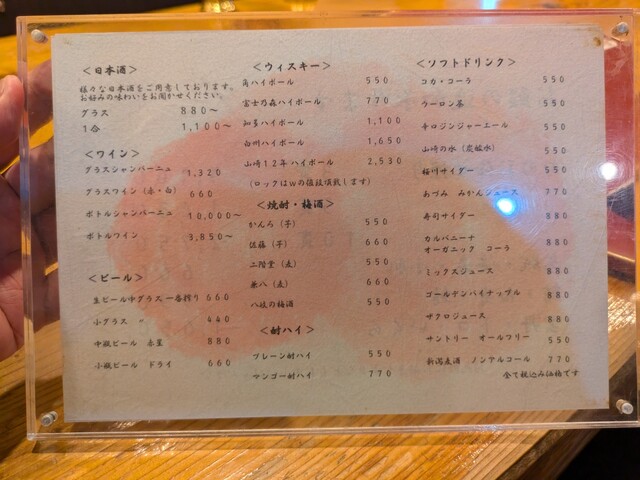 ＜日本酒＞
様々な日本酒をご用意しております。
お好みの味わいをお聞かせください。
グラス 880～
1合 1,100～
＜ワイン＞
グラスシャンパーニュ 1,320
グラスワイン（赤・白） 660
ボトルシャンパーニュ 10,000～
ボトルワイン 3,850～
＜ビール＞
生ビール中グラス 一番搾り 660
小グラス 〃 440
中瓶ビール 赤星 880
小瓶ビール ドライ 660
＜ウィスキー＞
角ハイボール 550
富士乃森ハイボール 770
知多ハイボール 1,100
白州ハイボール 1,650
山崎12年ハイボール 2,530
（ロックはwの値段頂戴します）
＜焼酎・梅酒＞
かんろ（芋） 550
佐藤（芋） 660
二階堂（麦） 550
兼八（麦） 660
八岐の梅酒 550
＜酎ハイ＞
プレーン酎ハイ 550
マンゴー酎ハイ 770
＜ソフトドリンク＞
コカ・コーラ 550
ウーロン茶 550
辛口ジンジャーエール 550
山崎の水（炭酸水） 550
桜川サイダー 550
あづみ みかんジュース 770
寿司サイダー 880
カルバニーナ
オーガニック コーラ 880
ミックスジュース 880
ゴールデンパイナップル 880
ザクロジュース 880
サントリー オールフリー 550
新潟麦酒 ノンアルコール 770
全て税込み価格です